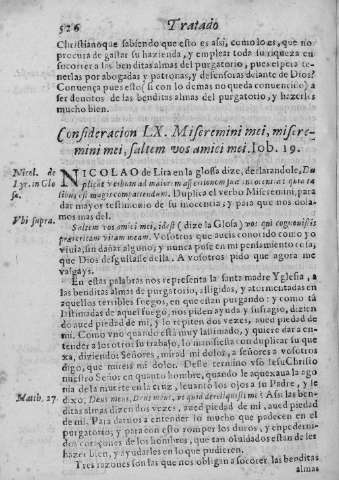 526 Tratado
Christiano que sabiendo que esto es assi, como lo es, que no
procura de gastar su hazienda, y emplear toda su riqueza en
socorrer a las benditas almas del purgatorio, pues espera te-
nerlas por abogadas y patronas, y defensoras delante de Dios?
Convença pues esto (si con lo demas no queda convencido) a
ser devotos de las benditas almas del purgatorio, y hazerles
mucho bien.
Consideracion LX. Miseremini mei, misere-
mini mei, saltem vos amici mei. Iob. 19.
Nicol. de
Lyr. in Glo
sa.
NICOLAO de Lira en la glossa dize, declarandole, Du
plicat verbum ad maiorem assertionem suae innocentiae; quia ta
libus est magis compatiendum. Duplica el verbo Miseremini, para
dar mayor testimonio de su inocencia; y para que nos dola-
mos mas del.
Vbi supra.
Saltem vos amici mei, idest (dize la Glosa) vos qui cognovistis
praeteritam vitam meam. Vosotros que aveis conocido como yo
vivia, sin dañar alguno; y nunca puse en mi pensamiento cosa,
que Dios desgustasse della. A vosotros pido que agora me
valgays.
En estas palabras nos representa la santa madre Yglesia, a
las benditas almas de purgatorio, afligidos, y atormentadas en
aquellos terribles fuegos, en que estan purgando: y como ta
lastimadas de aquel fuego, nos piden ayuda y sufragio, dizien
do aved piedad de mi, y lo repiten dos vezes, aved piedad de
mi. Como uno quando està muy lastimado, y quiere dar a en-
tender a los otros su trabajo, lo manifiesta con duplicar su que
xa, diziendo: Señores, mirad mi dolor, a señores a vosotros
digo, que mireis mi dolor. Deste termino usó Iesu Christo
nuestro Señor en quanto hombre, quando le aquexava la ago
nia de la muerte en la cruz, levantò los ojos a su Padre, y le
Matth. 27.
dixo, Deus meus, Deus meus, ut quid dereliquisti me? Assi las ben
ditas almas dizen dos vezes, aved piedad de mi, aved piedad
de mi. Para darnos a entender lo mucho que padecen en el
purgatorio, y para con esto romper los duros, y enpederni-
dos coraçones de los hombres, que tan olvidados estan de les
hazer bien, y ayudarles en lo que pudieren.
Tres razones son las que nos obligan a socorrer las benditas
almas